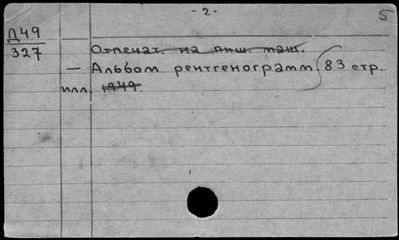 - 2 -
5
Д49
327
Отпечат. на пиш. маш.
— Альбом рентгенограмм 83 стр.
илл. 1949.